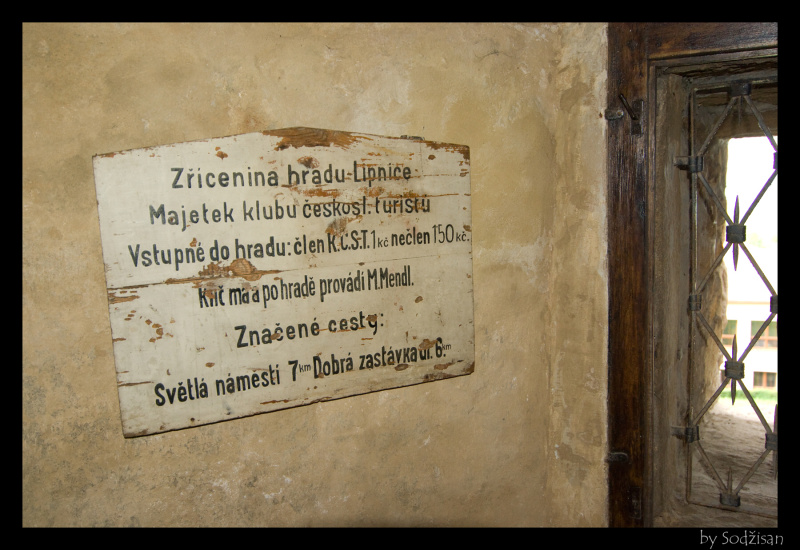 Zřícenina hradu Lipnice
Majetek klubu českosl. turistů
Vstupné do hradu: člen K.Č.S.T. 1 kč nečlen 1'50 kč.
Klíč má a po hradě provádí M. Mendl.
Značené cesty:
Světlá náměstí 7 km Dobrá zastávka dr. 6. km
by Sodžisan